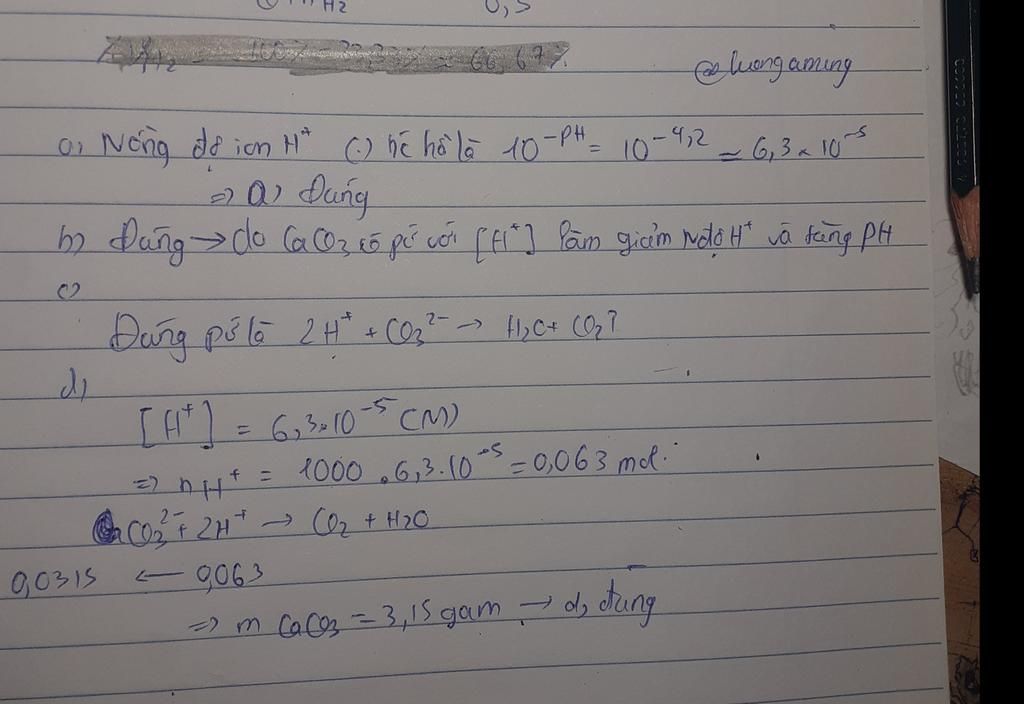 H2 0,5
= 100% - 33,33% = 66,67%
@luongaming
a, Nồng độ ion H⁺ (.) hc hồ là 10^-PH = 10^-4,2 = 6,3 × 10^-5
=> a) Đúng
b) Đúng → do CaCO3 có pứ với [H⁺] làm giảm Nđộ H⁺ và tăng PH
c)
Đúng pứ là 2H⁺ + CO3²⁻ → H2O + CO2↑
d,
[H⁺] = 6,3.10^-5 (M)
=> nH⁺ = 1000 . 6,3.10^-5 = 0,063 mol.
CO3²⁻ + 2H⁺ → CO2 + H2O
0,0315 ← 0,063
=> m CaCO3 = 3,15 gam → d, đúng